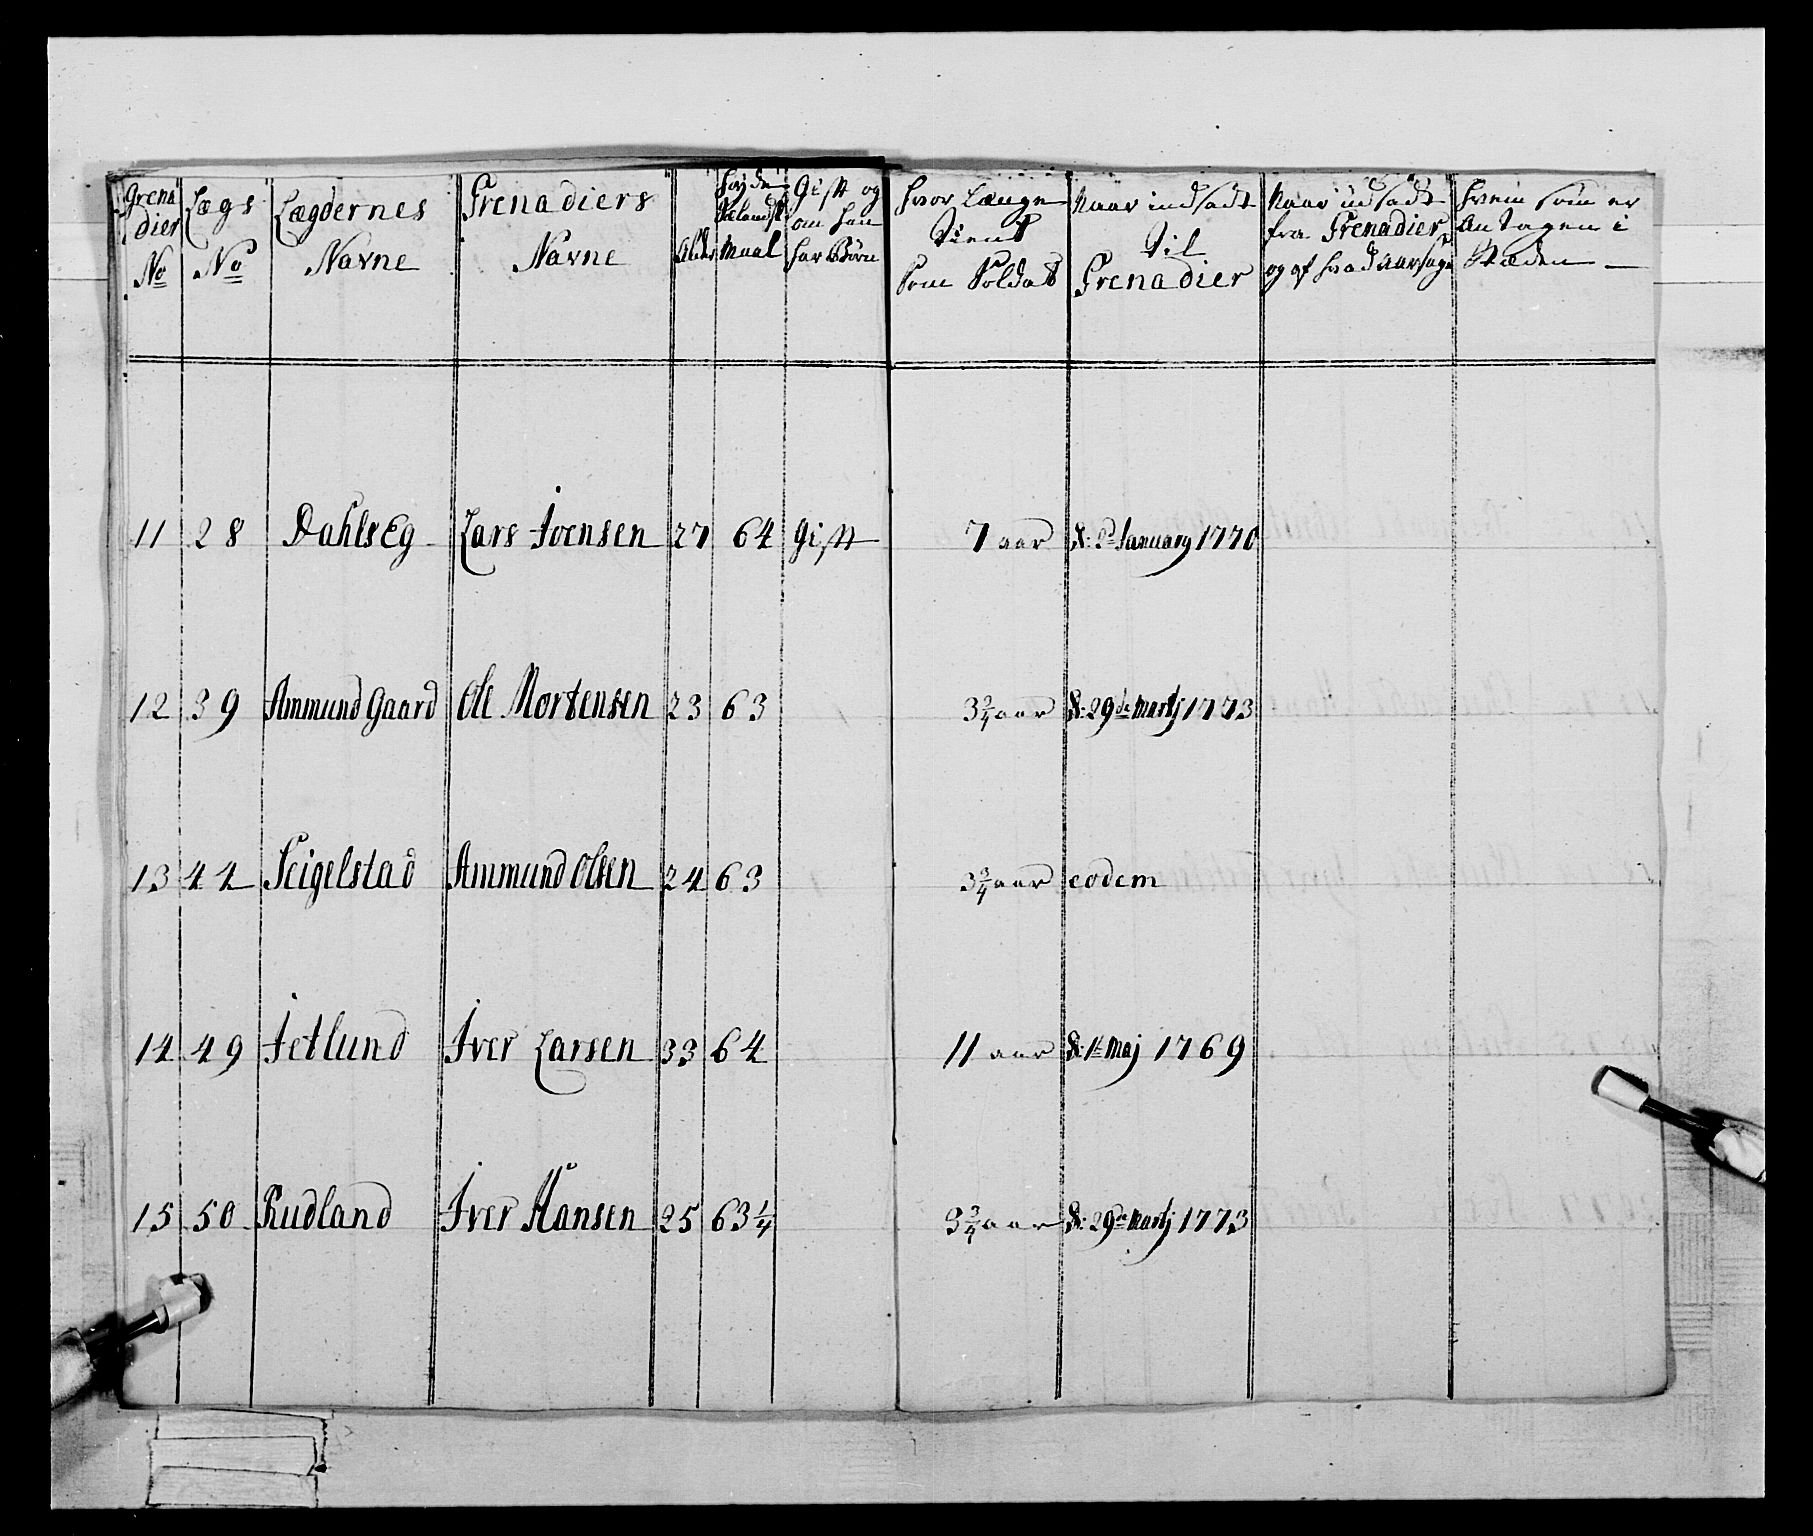 Grenadier No | Lægs No | Lægdernes Navne | Grenadiers Navne | Alder | Høyde Siælandsk Maal | Gift og om han har Børn | Hvor Længe Tient som Soldat | Naar indsadt til Grenadier | Naar udsadt fra Grenadier og af hvad aarsage | Hvem som er Antagen i Stæden
11 | 28 | DahlsEg | Lars Ivensen | 27 | 64 | Gift | 7 aar | January 1770
12 | 39 | Ammund Gaard | Ole Mortensen | 23 | 63 | 3 3/4 aar | D: 29de Martj 1773
13 | 44 | Seigelstad | Ammund Olsen | 24 | 63 | 3 3/4 aar | eodem
14 | 49 | Jetlund | Iver Larsen | 33 | 64 | 11 aar | D: 1te Maj 1769
15 | 50 | Rudland | Iver Hansen | 25 | 63 1/4 | 3 3/4 aar | D: 29de Martj 1773